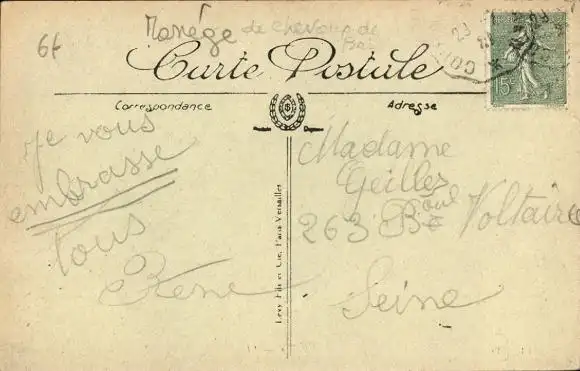 6f
Manége de chevaux de
Carte Postale
Correspondance
Adresse
15
Je vous
embrasse
tous
René
Madame
Geilles
263 Boul Voltaire
Seine
Lévy Fils et Cie, Paris Versailles